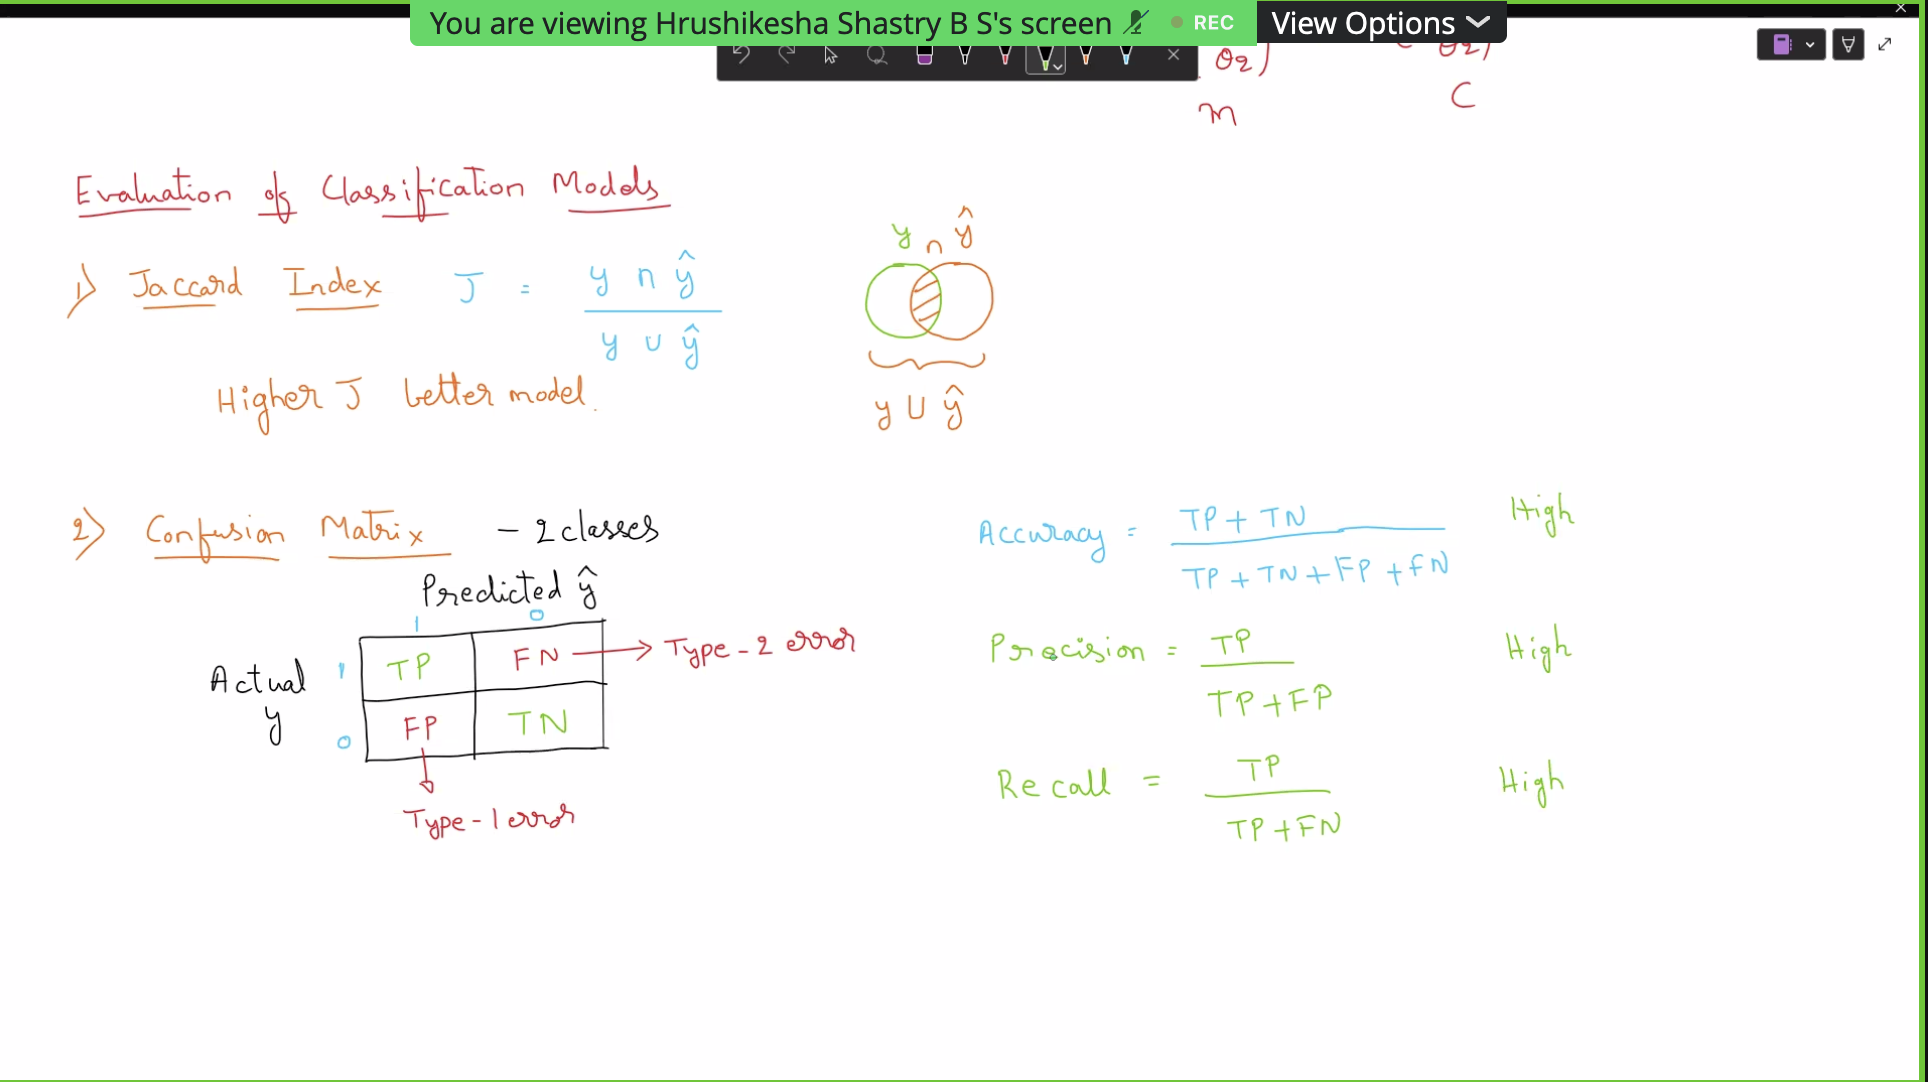 You are viewing Hrushikesha Shastry B S's screen REC View Options
θ2) θ2)
m C
Evaluation of Classification Models
1) Jaccard Index J = y ∩ ŷ
y ∪ ŷ
y ∩ ŷ
Higher J better model.
y ∪ ŷ
2) Confusion Matrix - 2 classes
Predicted ŷ
1 0
Actual y
1 TP FN → Type-2 error
0 FP TN
Type-1 error
Accuracy = TP + TN High
TP + TN + FP + FN
Precision = TP High
TP + FP
Recall = TP High
TP + FN